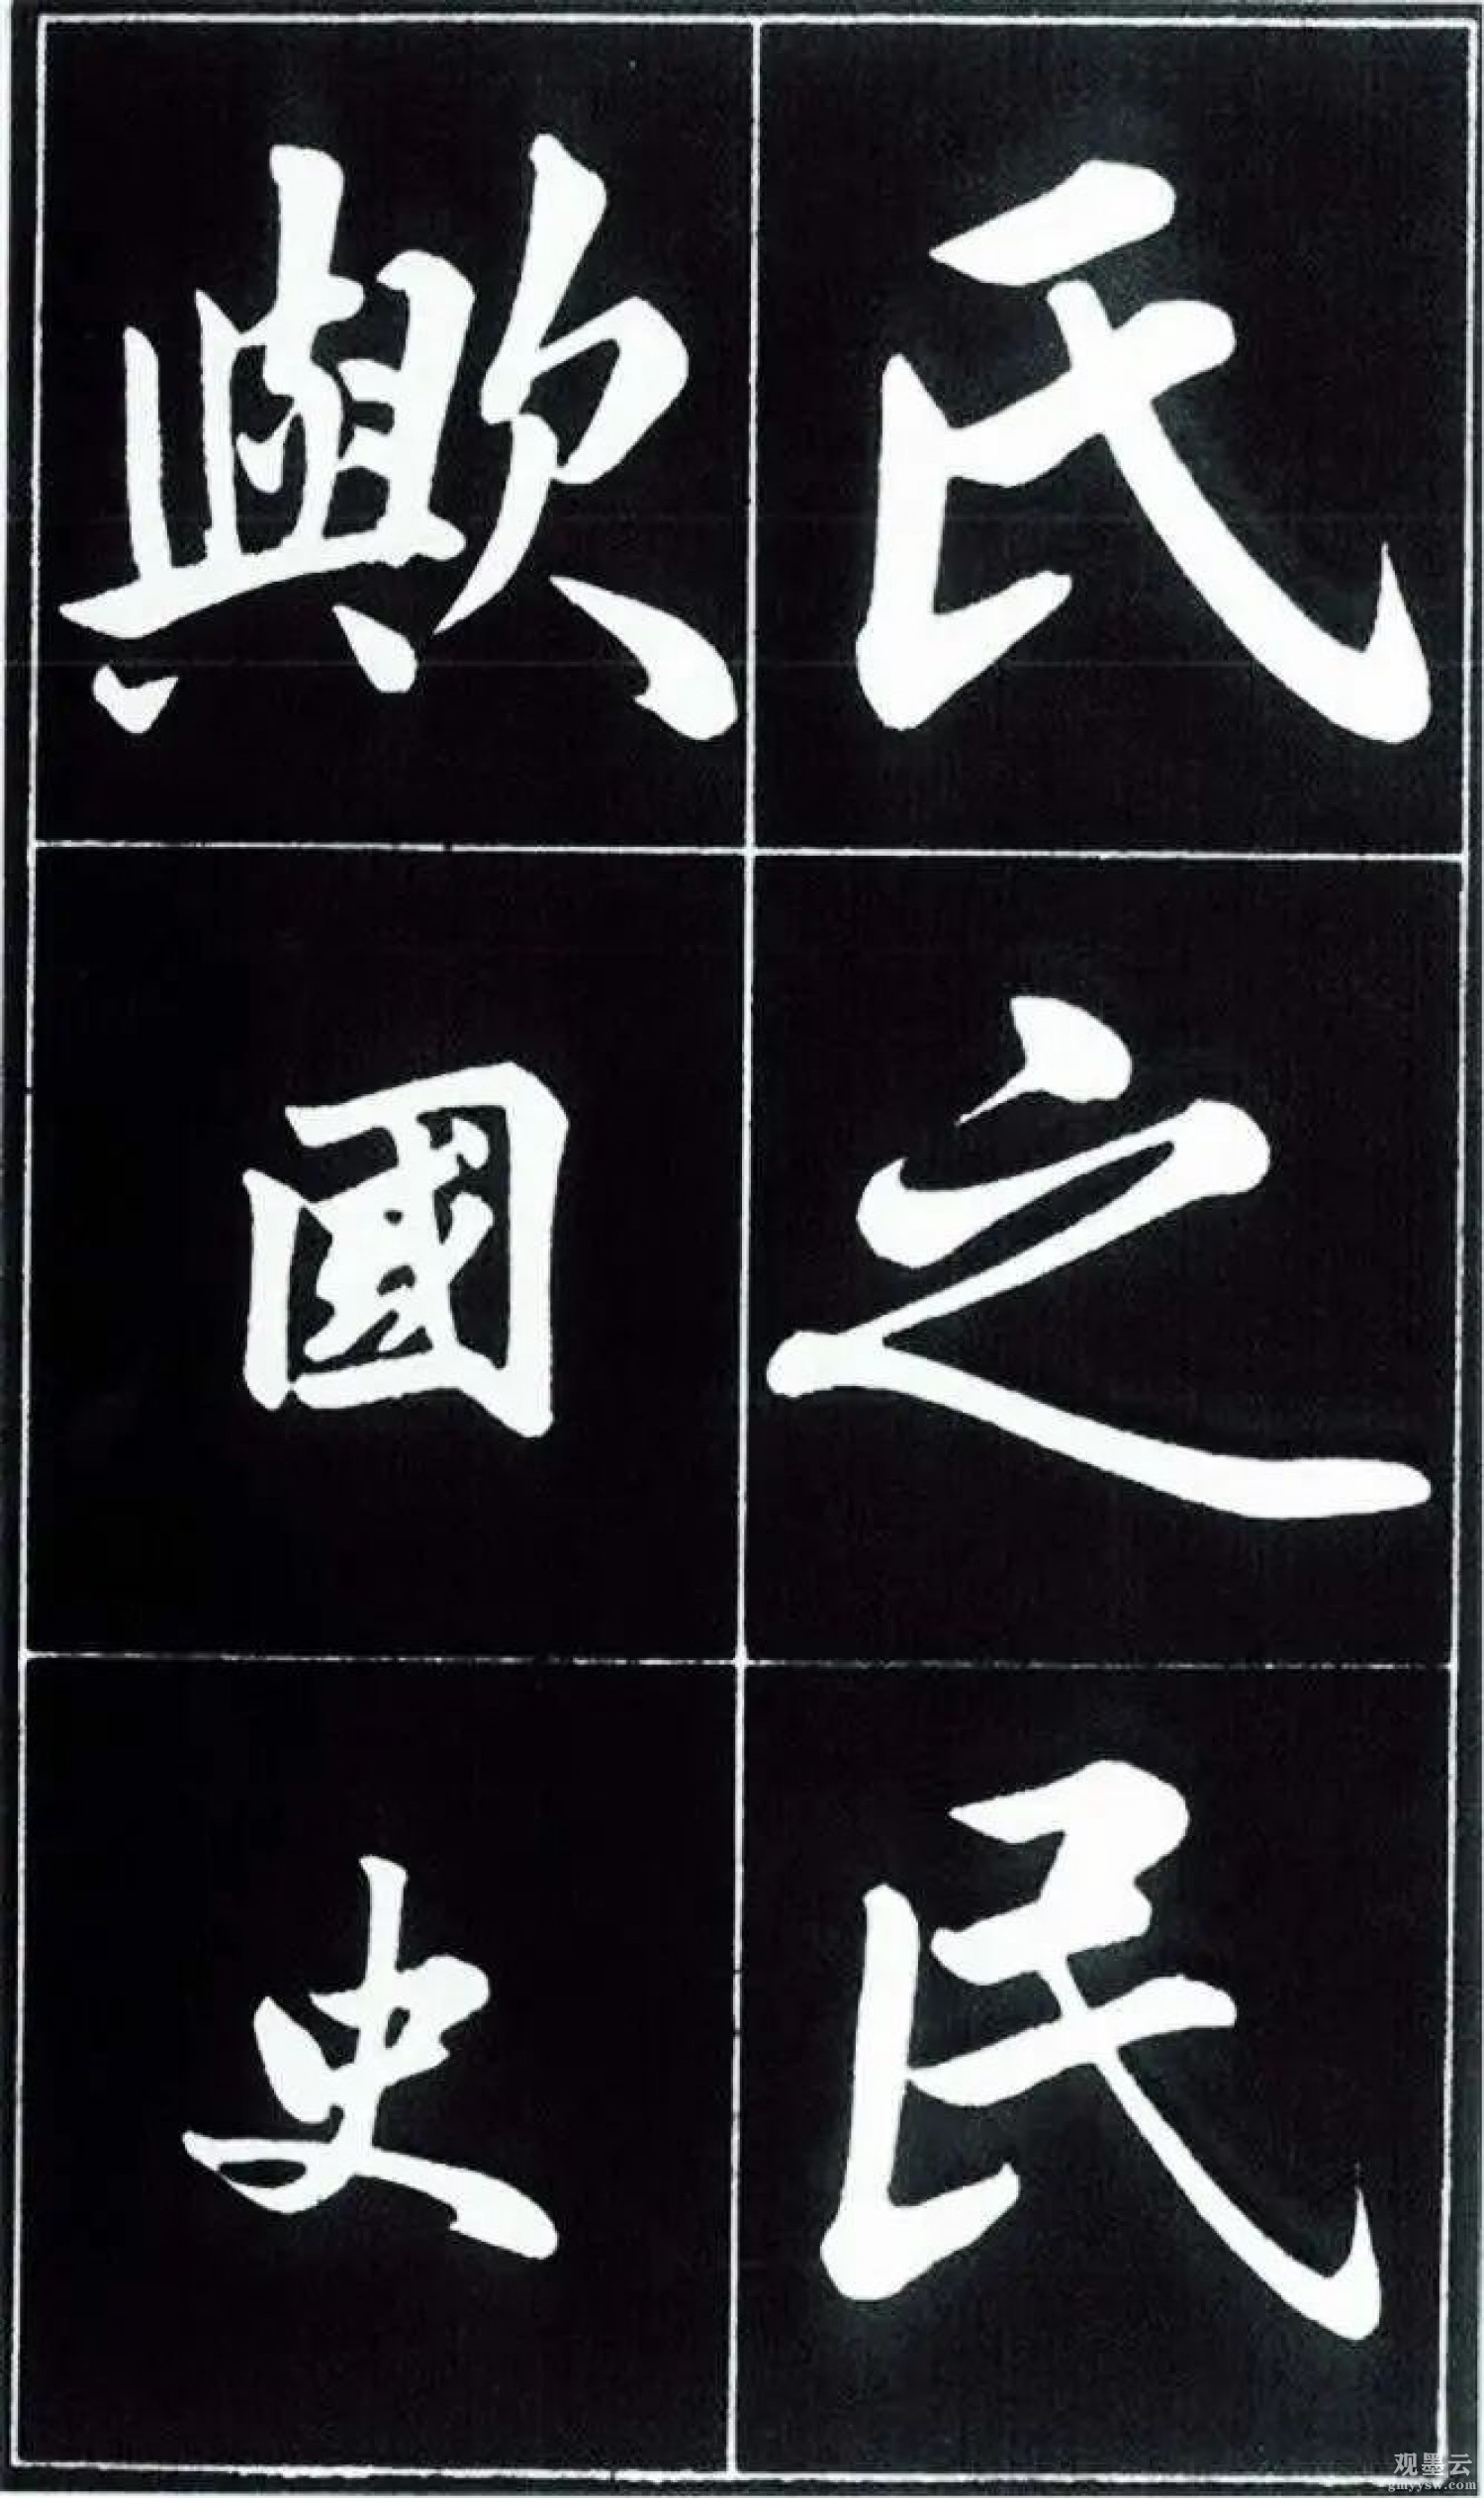 氏之民
歟國史
观墨云
gmyysw.com